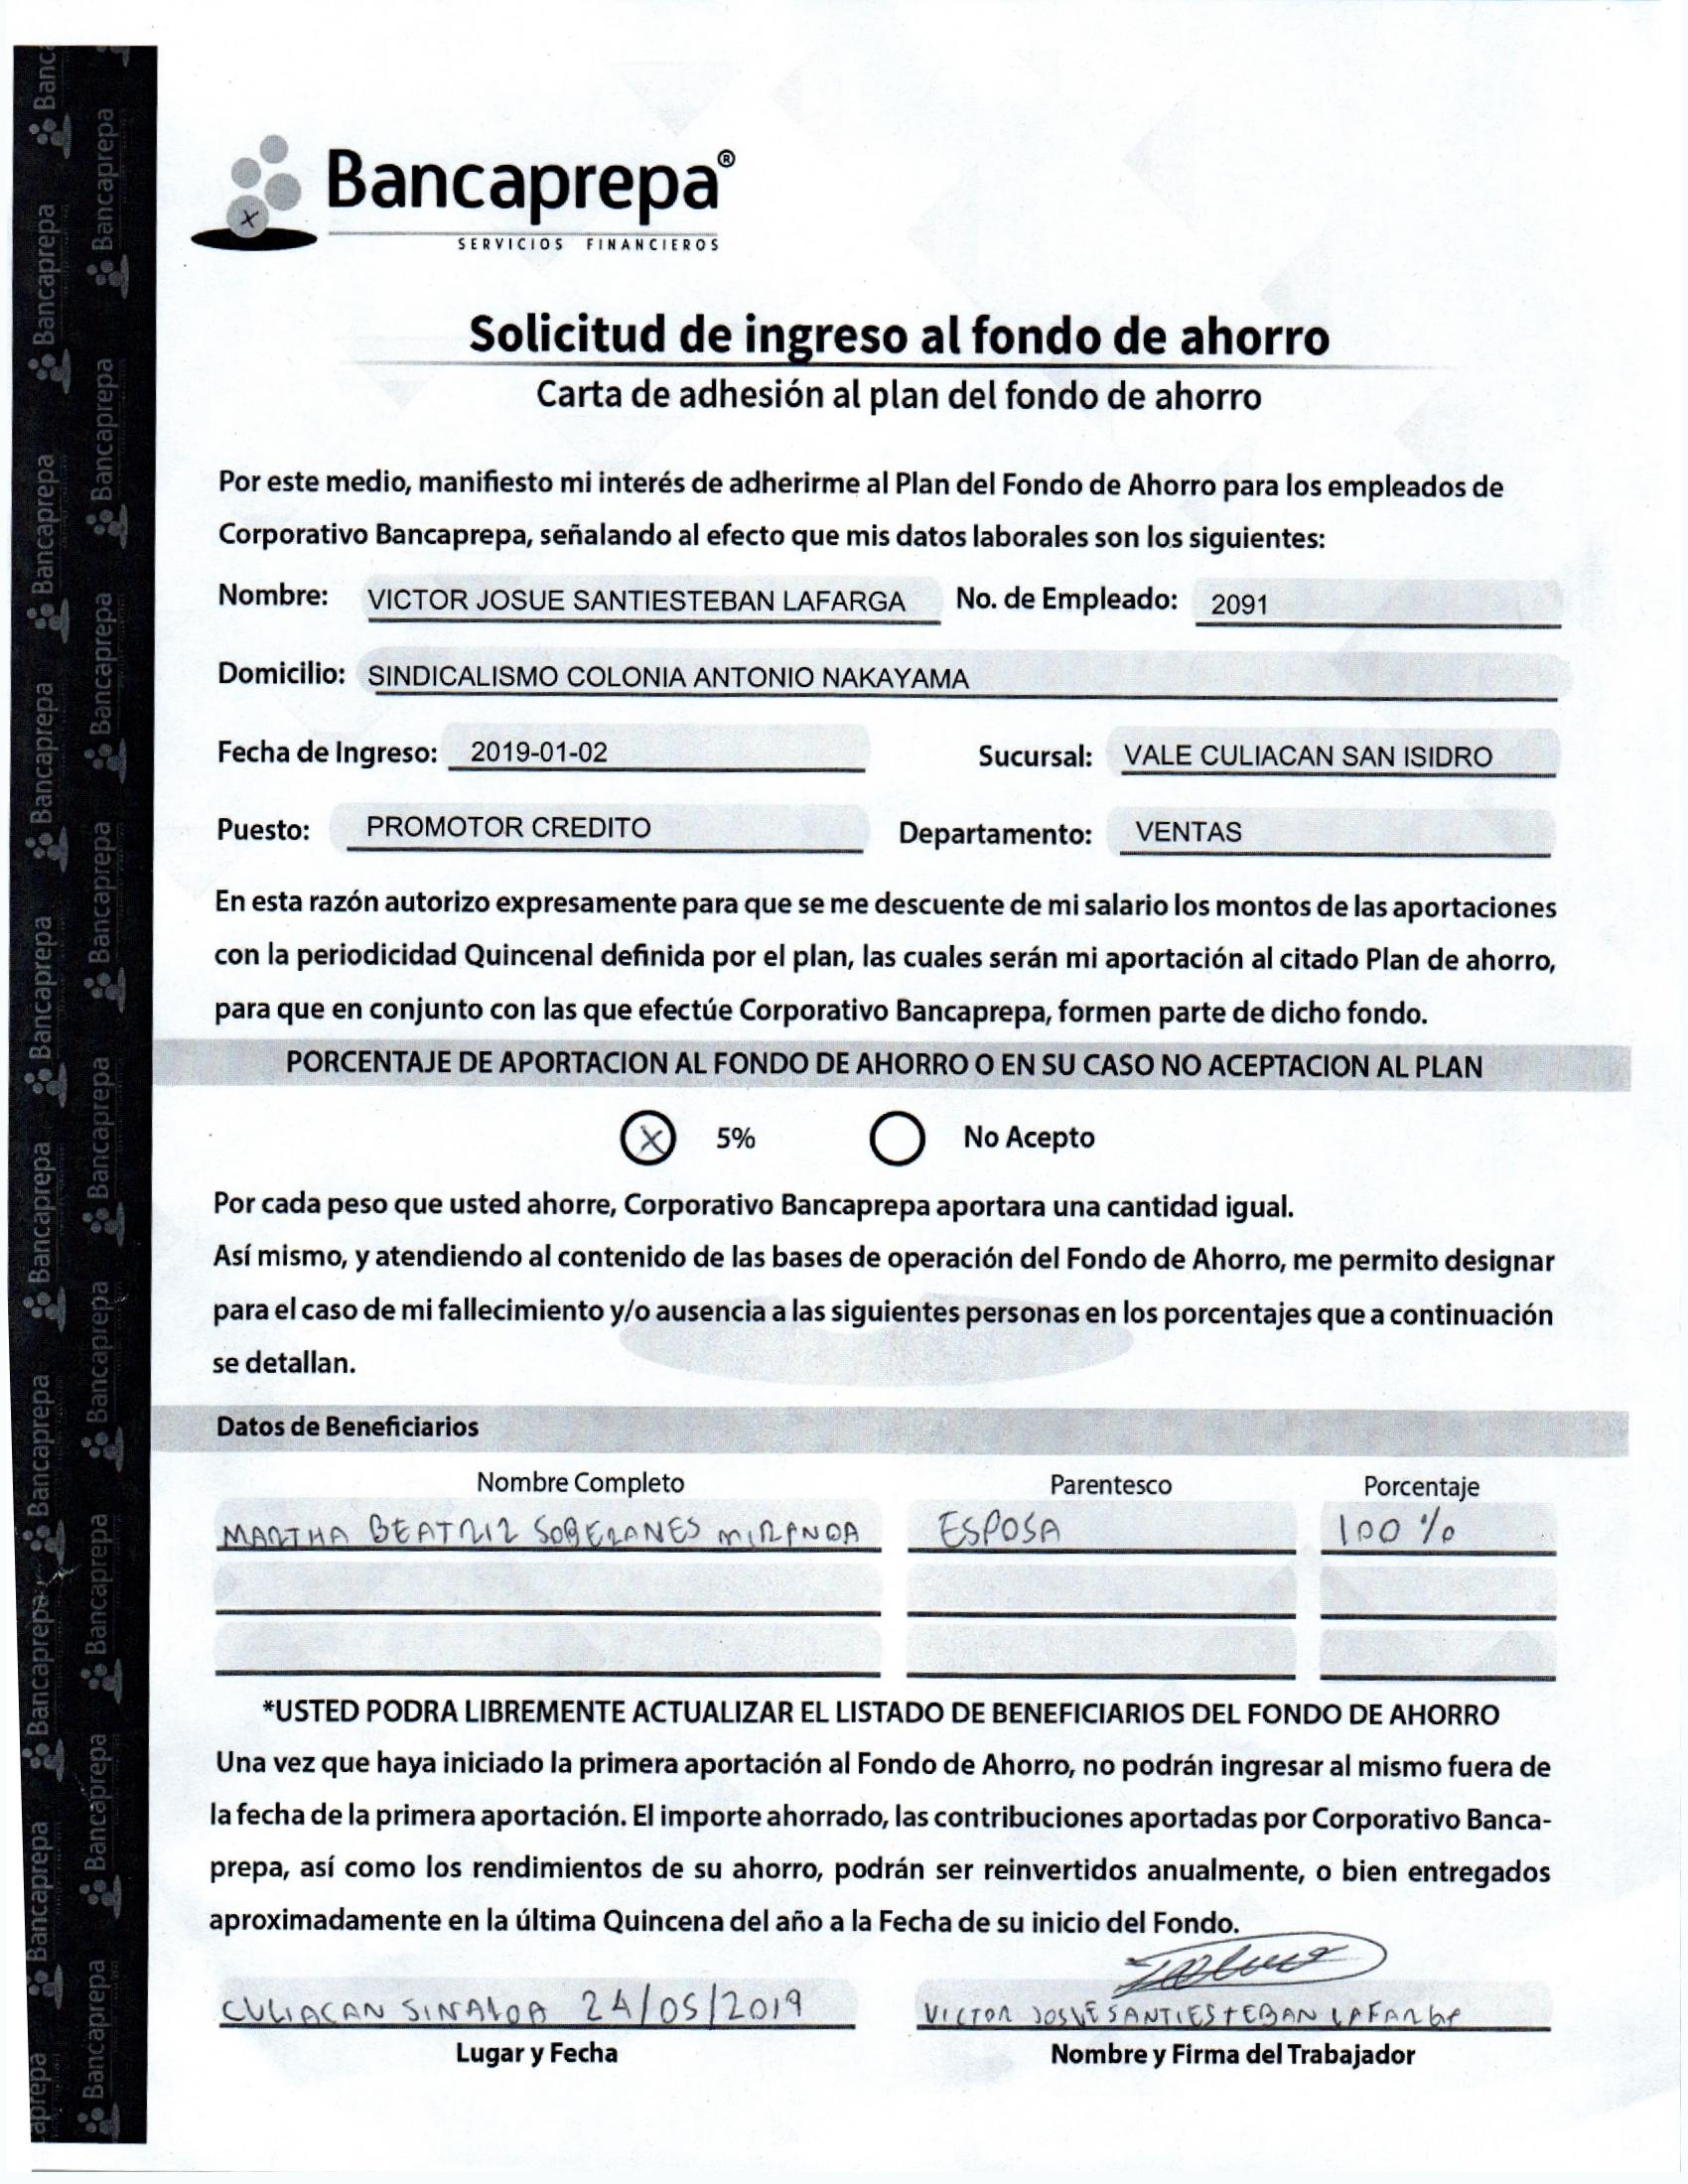 Bancaprepa®
SERVICIOS FINANCIEROS
Solicitud de ingreso al fondo de ahorro
Carta de adhesión al plan del fondo de ahorro
Por este medio, manifiesto mi interés de adherirme al Plan del Fondo de Ahorro para los empleados de
Corporativo Bancaprepa, señalando al efecto que mis datos laborales son los siguientes:
Nombre: VICTOR JOSUE SANTIESTEBAN LAFARGA No. de Empleado: 2091
Domicilio: SINDICALISMO COLONIA ANTONIO NAKAYAMA
Fecha de Ingreso: 2019-01-02 Sucursal: VALE CULIACAN SAN ISIDRO
Puesto: PROMOTOR CREDITO Departamento: VENTAS
En esta razón autorizo expresamente para que se me descuente de mi salario los montos de las aportaciones
con la periodicidad Quincenal definida por el plan, las cuales serán mi aportación al citado Plan de ahorro,
para que en conjunto con las que efectúe Corporativo Bancaprepa, formen parte de dicho fondo.
PORCENTAJE DE APORTACION AL FONDO DE AHORRO O EN SU CASO NO ACEPTACION AL PLAN
X 5% No Acepto
Por cada peso que usted ahorre, Corporativo Bancaprepa aportara una cantidad igual.
Así mismo, y atendiendo al contenido de las bases de operación del Fondo de Ahorro, me permito designar
para el caso de mi fallecimiento y/o ausencia a las siguientes personas en los porcentajes que a continuación
se detallan.
Datos de Beneficiarios
Nombre Completo Parentesco Porcentaje
MARTHA BEATRIZ SOBERANES MIRANDA ESPOSA 100 %
*USTED PODRA LIBREMENTE ACTUALIZAR EL LISTADO DE BENEFICIARIOS DEL FONDO DE AHORRO
Una vez que haya iniciado la primera aportación al Fondo de Ahorro, no podrán ingresar al mismo fuera de
la fecha de la primera aportación. El importe ahorrado, las contribuciones aportadas por Corporativo Banca-
prepa, así como los rendimientos de su ahorro, podrán ser reinvertidos anualmente, o bien entregados
aproximadamente en la última Quincena del año a la Fecha de su inicio del Fondo.
CULIACAN SINALOA 24/05/2019 VICTOR JOSUE SANTIESTEBAN LAFARGA
Lugar y Fecha Nombre y Firma del Trabajador